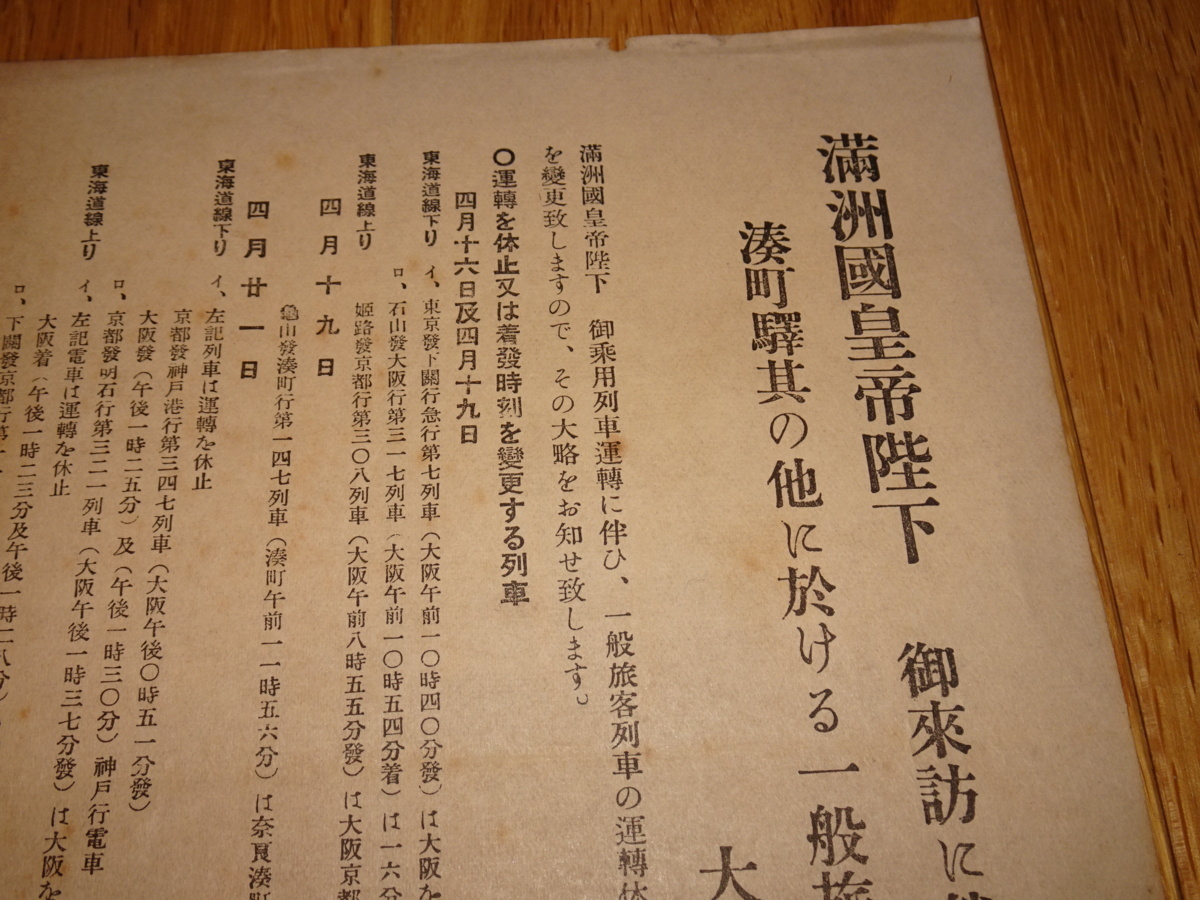 滿洲國皇帝陛下　御來訪に
湊町驛其の他に於ける一般旅
大
滿洲國皇帝陛下　御乘用列車運轉に伴ひ、一般旅客列車の運轉休
を變更致しますので、その大略をお知せ致します。
○運轉を休止又は着發時刻を變更する列車
四月十六日及四月十九日
東海道線下り　イ、東京發下關行急行第七列車（大阪午前一〇時四〇分發）は大阪を
ロ、石山發大阪行第三一七列車（大阪午前一〇時五四分着）は一六分
東海道線上り　姬路發京都行第三〇八列車（大阪午前八時五五分發）は大阪京都
四月十九日
龜山發湊町行第一四七列車（湊町午前一一時五六分）は奈良湊町
四月廿一日
東海道線下り　イ、左記列車は運轉を休止
京都發神戶港行第三四七列車（大阪午後〇時五一分發）
大阪發（午後一時二五分）及（午後一時三〇分）神戶行電車
ロ、京都發明石行第三二一列車（大阪午後一時三七分發）は大阪を
東海道線上り　イ、左記電車は運轉を休止
大阪着（午後一時二三分及午後一時二八分）
ロ、下關發京都行第